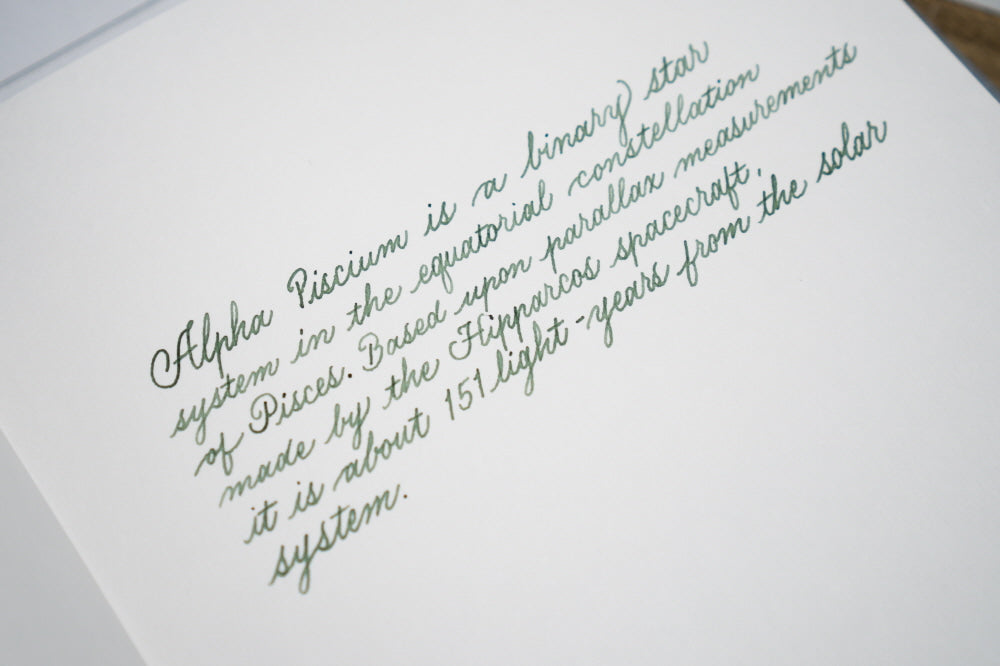 Alpha Piscium is a binary star
system in the equatorial constellation
of Pisces. Based upon parallax measurements
made by the Hipparcos spacecraft,
it is about 151 light-years from the solar
system.